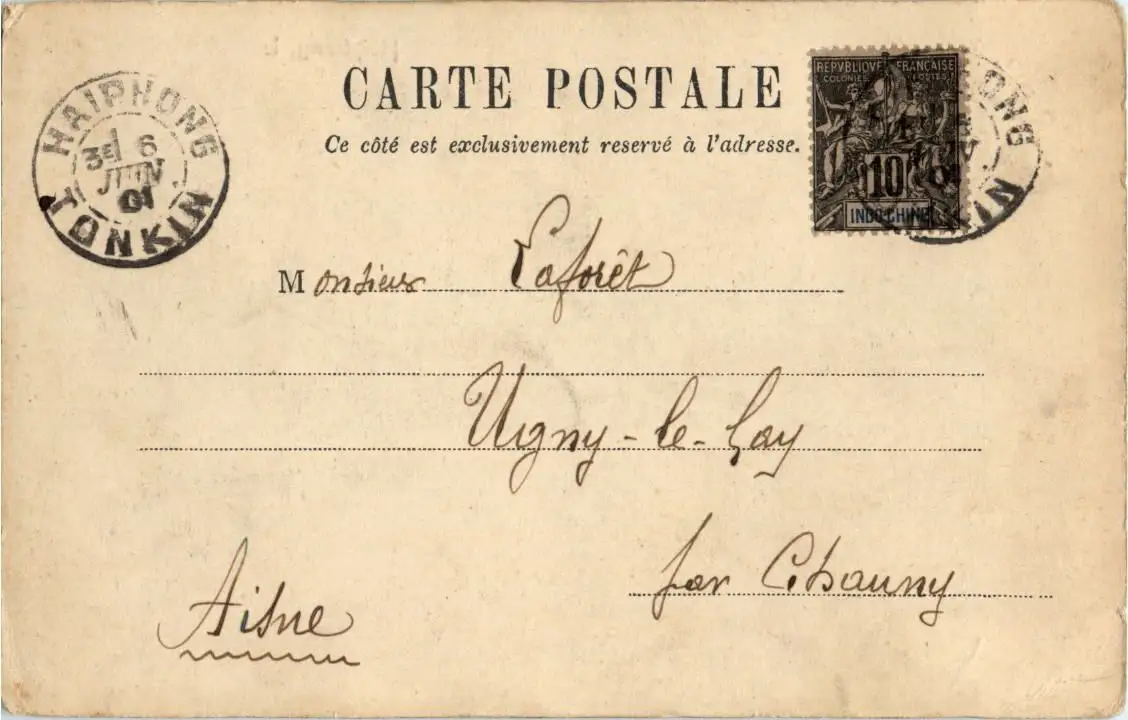 CARTE POSTALE
Ce côté est exclusivement reservé à l'adresse.
HAIPHONG
3ᵉ 6
JUIN
01
TONKIN
REPVBLIQVE FRANÇAISE
COLONIES POSTES
10
INDO-CHINE
ONG
KIN
Monsieur Laforêt
Ugny-le-Gay
par Chauny
Aisne